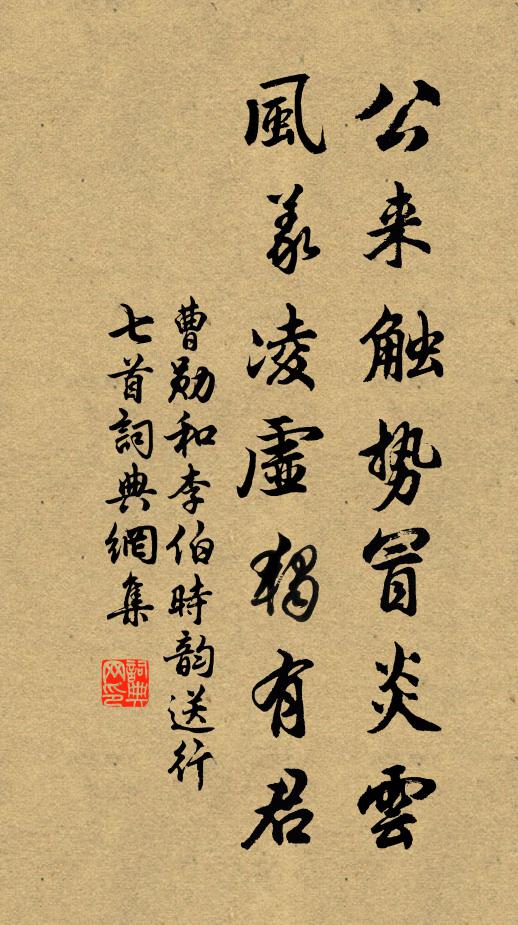 公来触势冒炎雲
風義凌虛獨有君
曹勛和李伯時韵送行
七首詞典網集
詞典网印